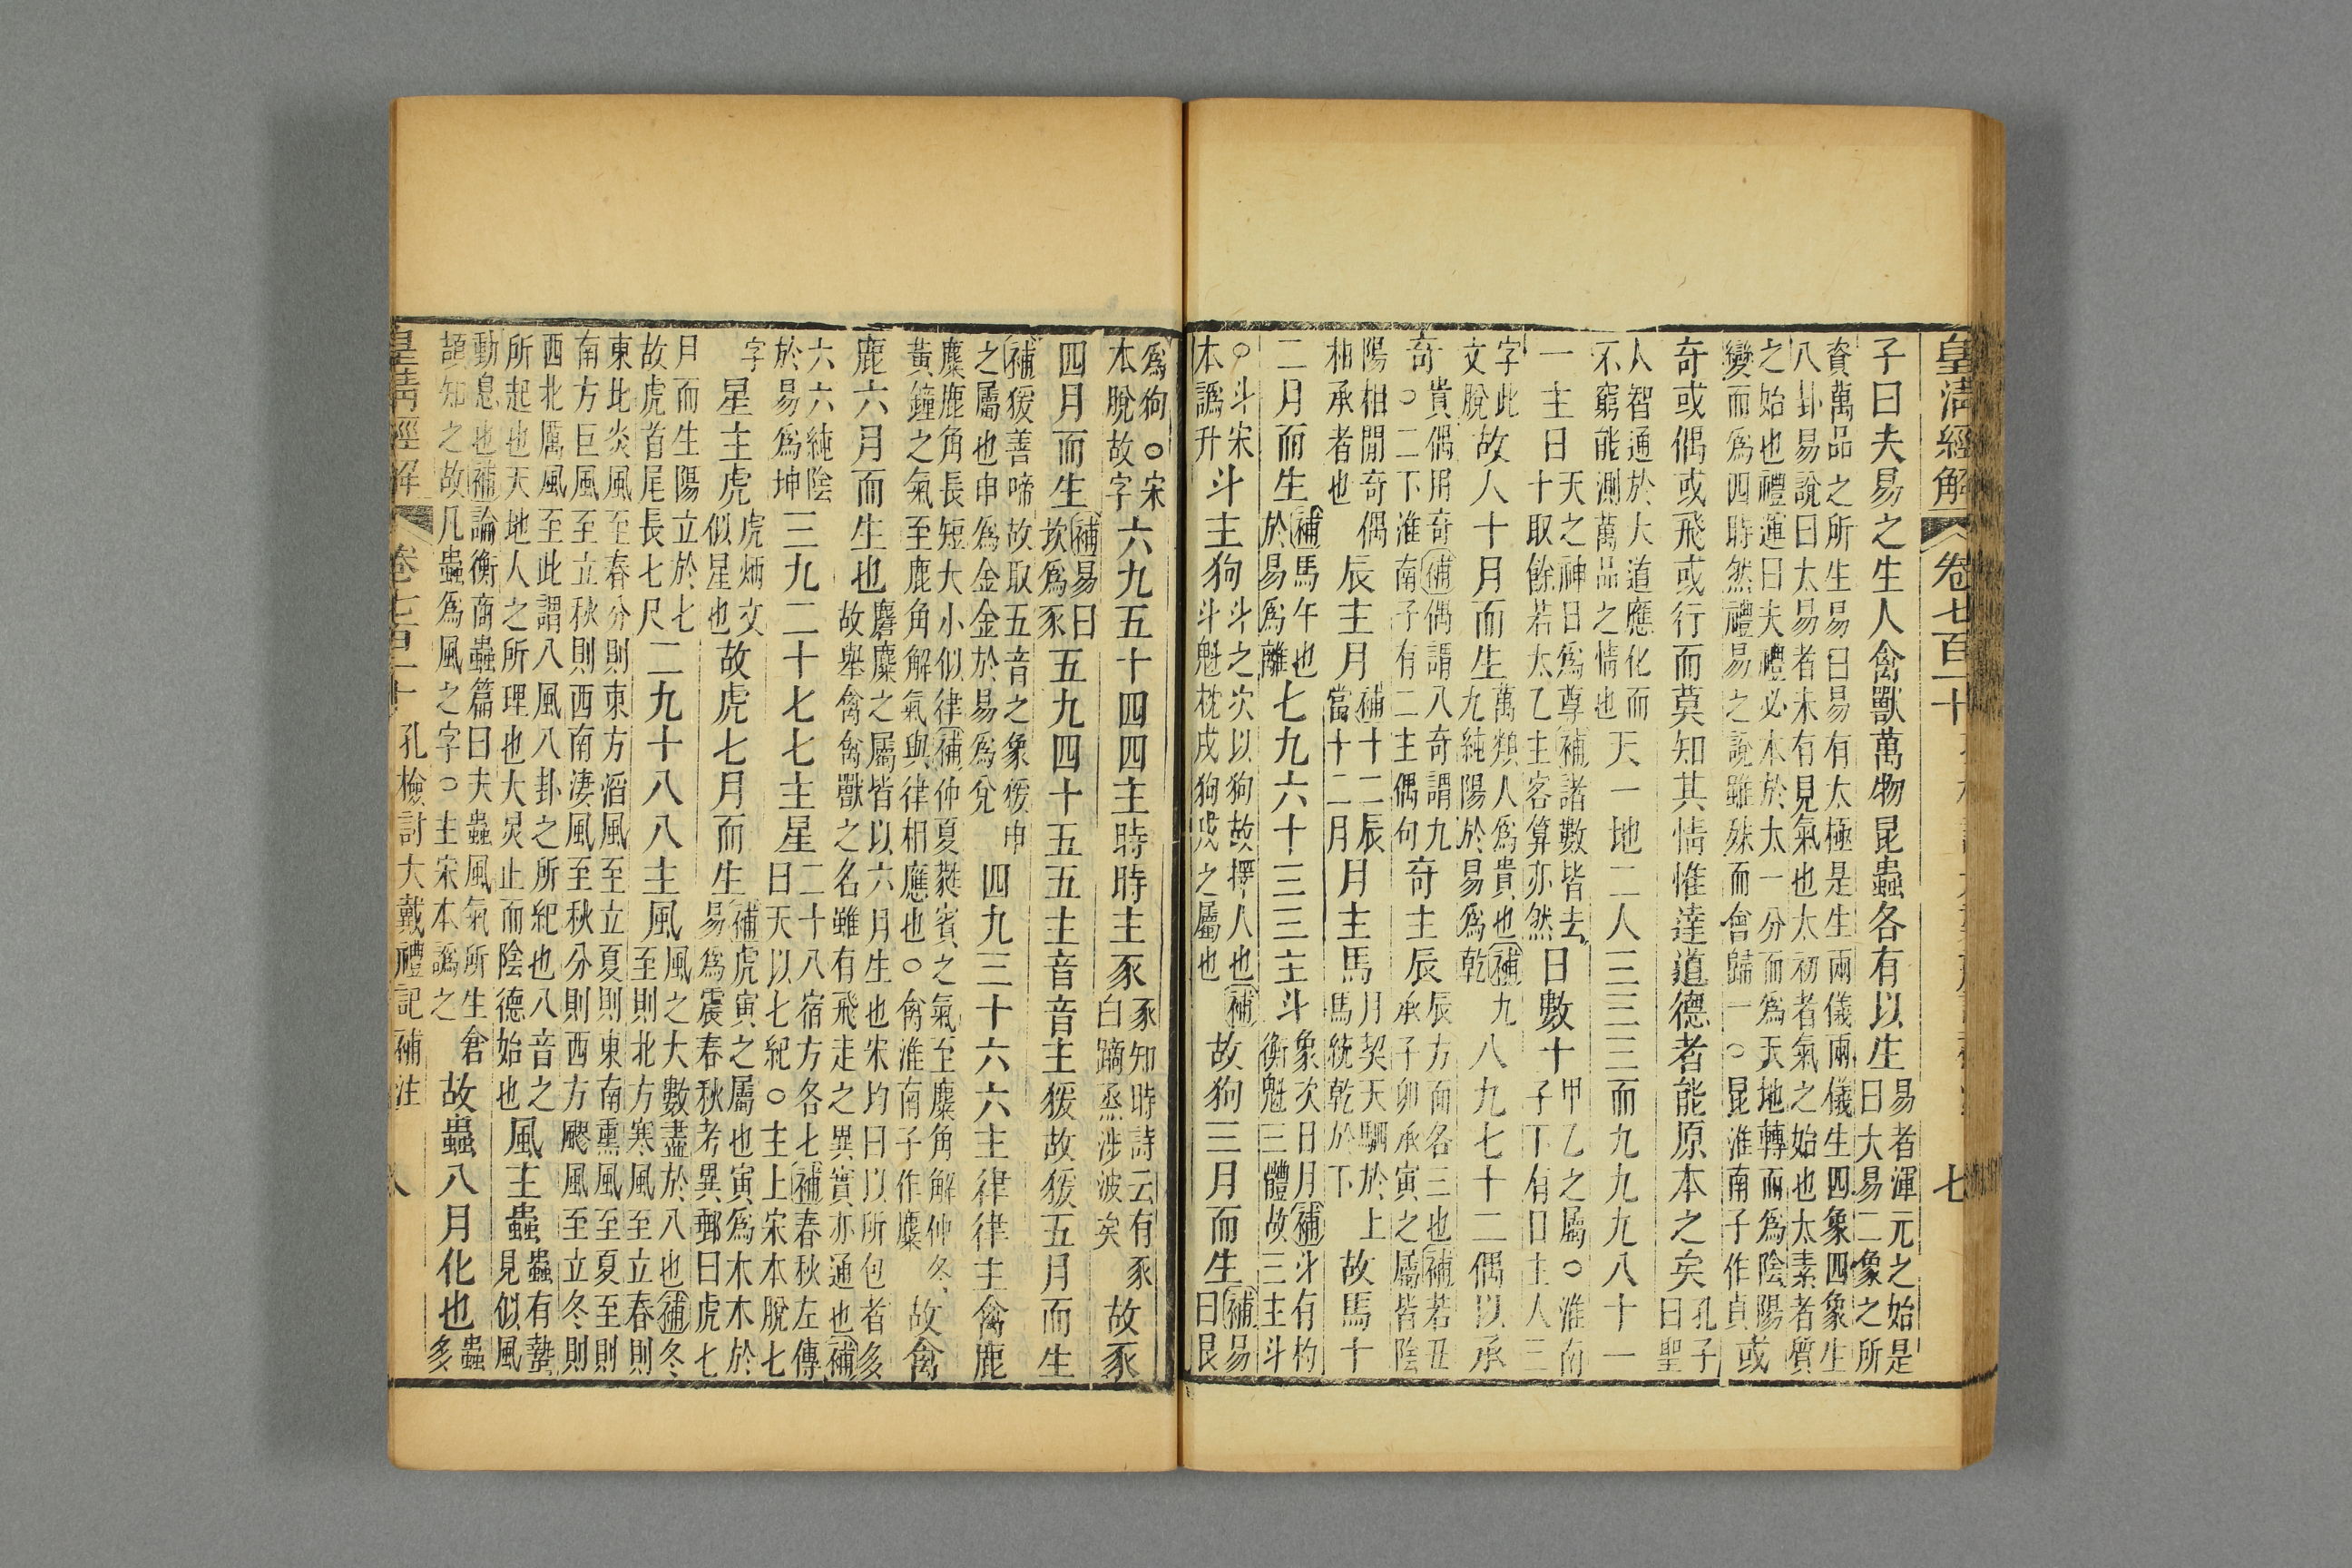 皇清經解　卷七百一十　七
子曰夫易之生人禽獸萬物昆蟲各有以生易者渾元之始是曰大易二象之所
資萬品之所生易曰易有太極是生兩儀兩儀生四象四象生八卦易說曰太易者未有見氣也太初者氣之始也太素者質
之始也禮運曰夫禮必本於太一分而爲天地轉而爲陰陽變而爲四時然禮易之說雖殊而會歸一○昆淮南子作貞或
奇或偶或飛或行而莫知其情惟達道德者能原本之矣孔子曰聖
人智通於大道應化而不窮能測萬品之情也天一地二人三三三而九九九八十一
一主日天之神日爲尊補諸數皆去十取餘若太乙主客算亦然日數十甲乙之屬○淮南子下有日主人三
字此文脫故人十月而生萬類人爲貴也補九九純陽於易爲乾八九七十二偶以承
奇貴偶用奇補偶謂八奇謂九○二下淮南子有二主偶句奇主辰辰方面各三也補若丑承子卯承寅之屬皆陰
陽相閒奇偶相承者也辰主月補十二辰當十二月月主馬月契天駟於上馬統乾於下故馬十
二月而生補馬午也於易爲離七九六十三三主斗象次日月補斗有杓衡魁三體故三主斗
○斗宋本譌升斗主狗斗之次以狗故擇人也補斗魁枕戌狗戌之屬也故狗三月而生補易曰艮
爲狗○宋本脫故字六九五十四四主時時主豕豕知時詩云有豕白蹢烝涉波矣故豕
四月而生補易曰坎爲豕五九四十五五主音音主猨故猨五月而生
補猨善啼故取五音之象猨申之屬也申爲金金於易爲兌四九三十六六主律律主禽鹿
麋鹿角長短大小似律補仲夏蕤賓之氣至麋角解仲冬黃鐘之氣至鹿角解氣與律相應也○禽淮南子作麋故禽
鹿六月而生也麕麋之屬皆以六月生也宋均曰以所包者多故舉禽禽獸之名雖有飛走之異實亦通也補
六六純陰於易爲坤三九二十七七主星二十八宿方各七補春秋左傳曰天以七紀○主上宋本脫七
字星主虎虎炳文似星也故虎七月而生補虎寅之屬也寅爲木木於易爲震春秋考異郵曰虎七
月而生陽立於七故虎首尾長七尺二九十八八主風風之大數盡於八也補冬至則北方寒風至立春則
東北炎風至春分則東方滔風至立夏則東南熏風至夏至則南方巨風至立秋則西南淒風至秋分則西方飂風至立冬則
西北厲風至此謂八風八卦之所紀也八音之所起也天地人之所理也大炅止而陰德始也風主蟲蟲有蟄見似風
動息也補論衡商蟲篇曰夫蟲風氣所生倉頡知之故凡蟲爲風之字○主宋本譌之故蟲八月化也蟲多
皇清經解　卷七百一十　孔檢討大戴禮記補注　八